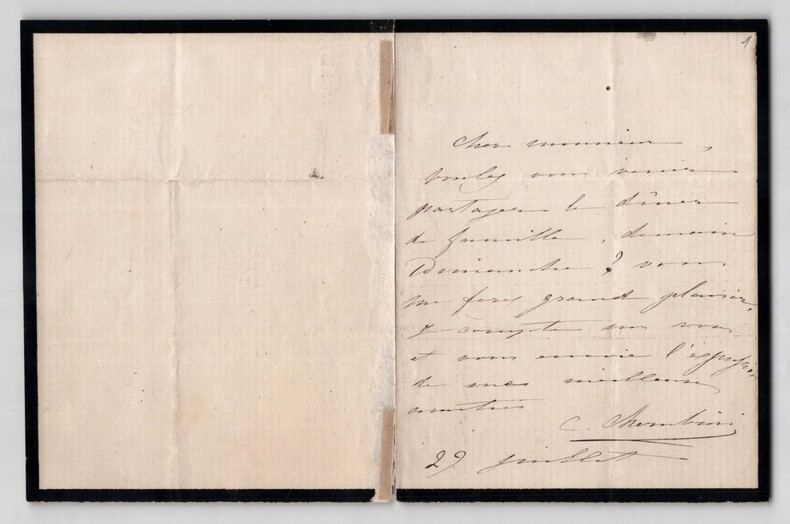 1
Cher monsieur,
voulez vous venir
partager le dîner
de famille, demain
Dimanche ? vous
me ferez grand plaisir,
je compte sur vous
et vous envoie l'expression
de mes meilleurs
amitiés
C. Cherubini
29 juillet